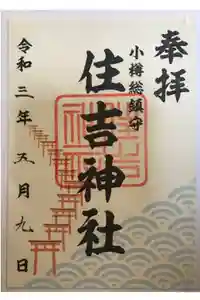 奉拝
小樽総鎮守
住吉神社
令和三年五月九日